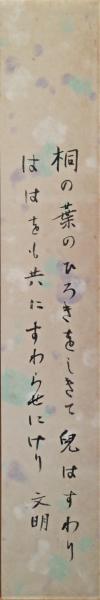 桐の葉のひろきをしきて兒はすわり
ははをも共にすわらせにけり 文明